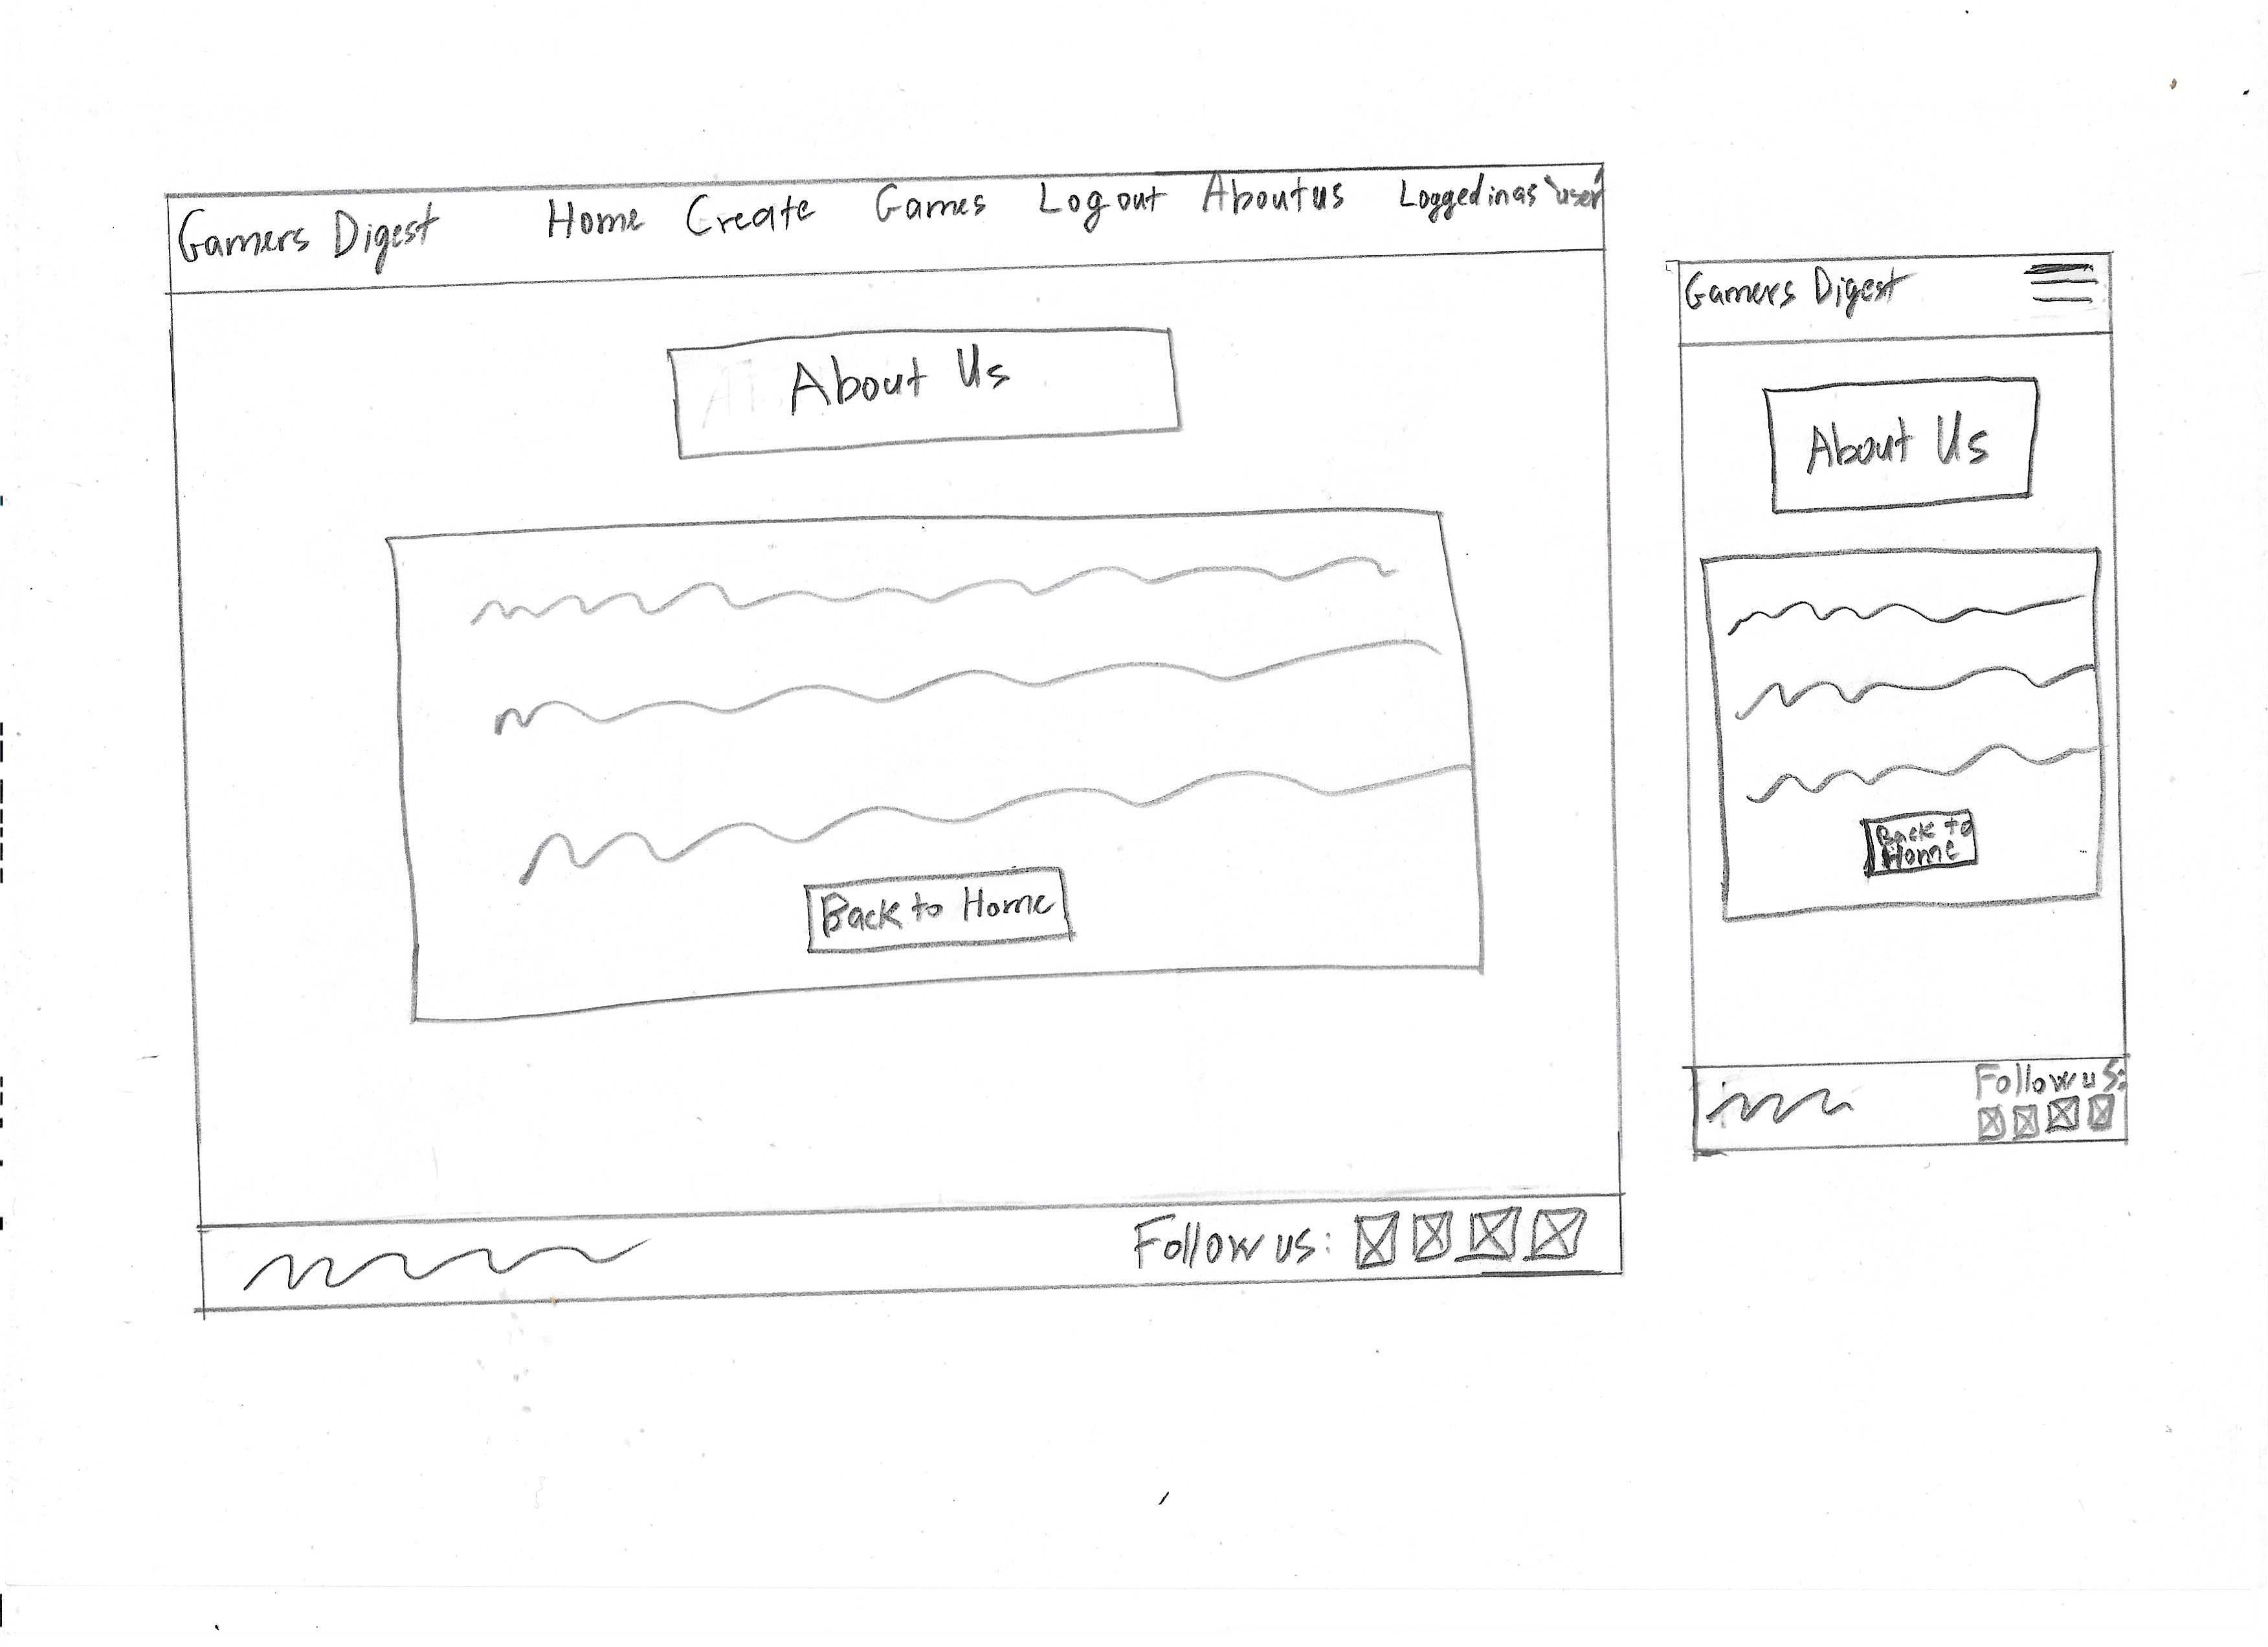 Gamers Digest Home Create Games Log out About us Logged in as 'user'
About Us
Back to Home
Follow us:
Gamers Digest
About Us
Back to
Home
Follow us: